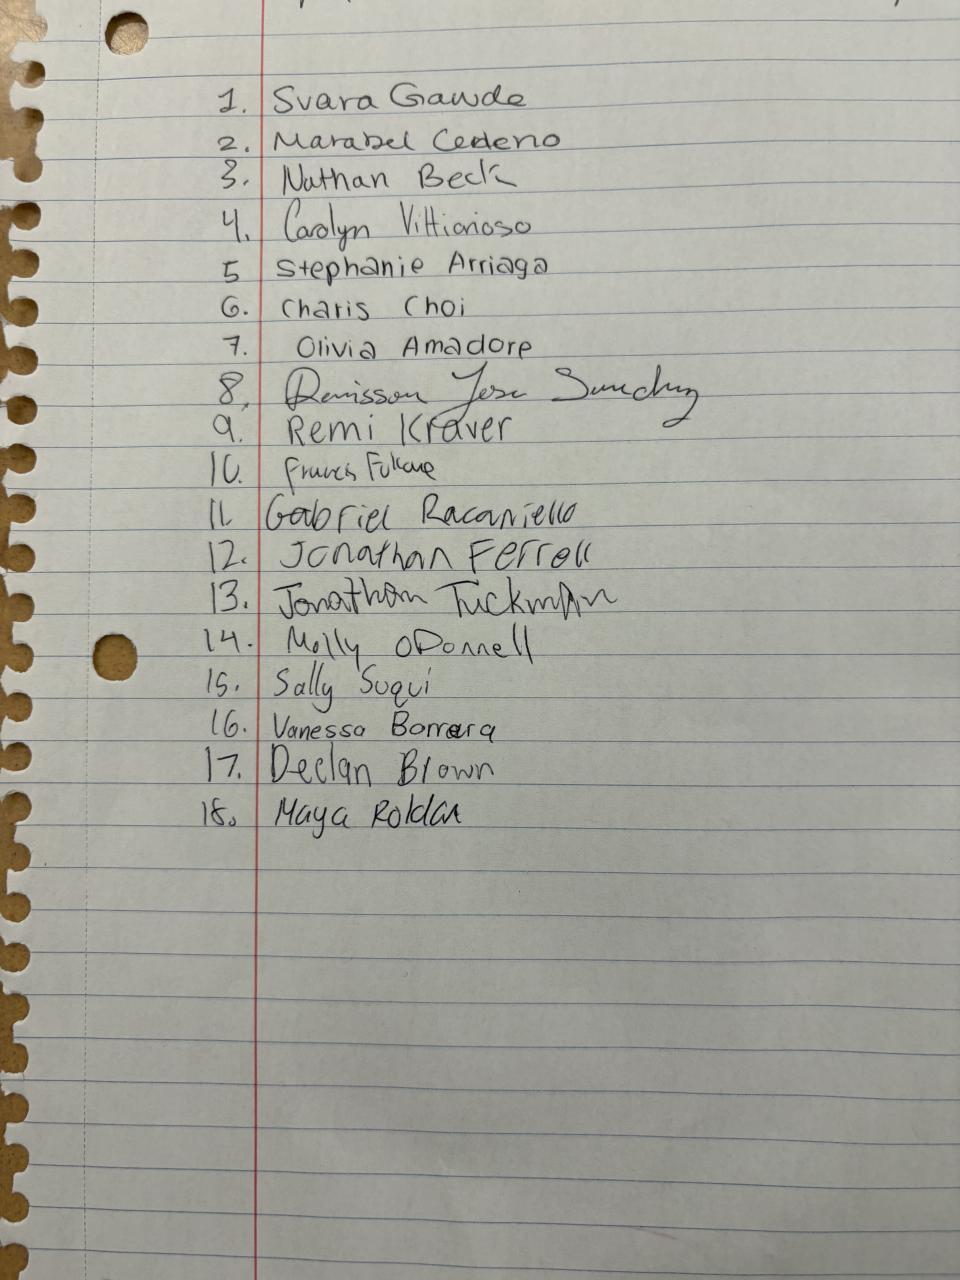 1. Svara Gawde
2. Marabel Cedeno
3. Nathan Beck
4. Carolyn Vittiorioso
5 Stephanie Arriaga
6. Charis Choi
7. Olivia Amadore
8. Jose
9. Remi Kraver
10. Francis
11. Gabriel Racaniello
12. Jonathan Ferrell
13. Jonathan Tuckman
14. Molly ODonnell
15. Sally Suqui
16. Vanessa Barrera
17. Declan Brown
18. Maya Roldan